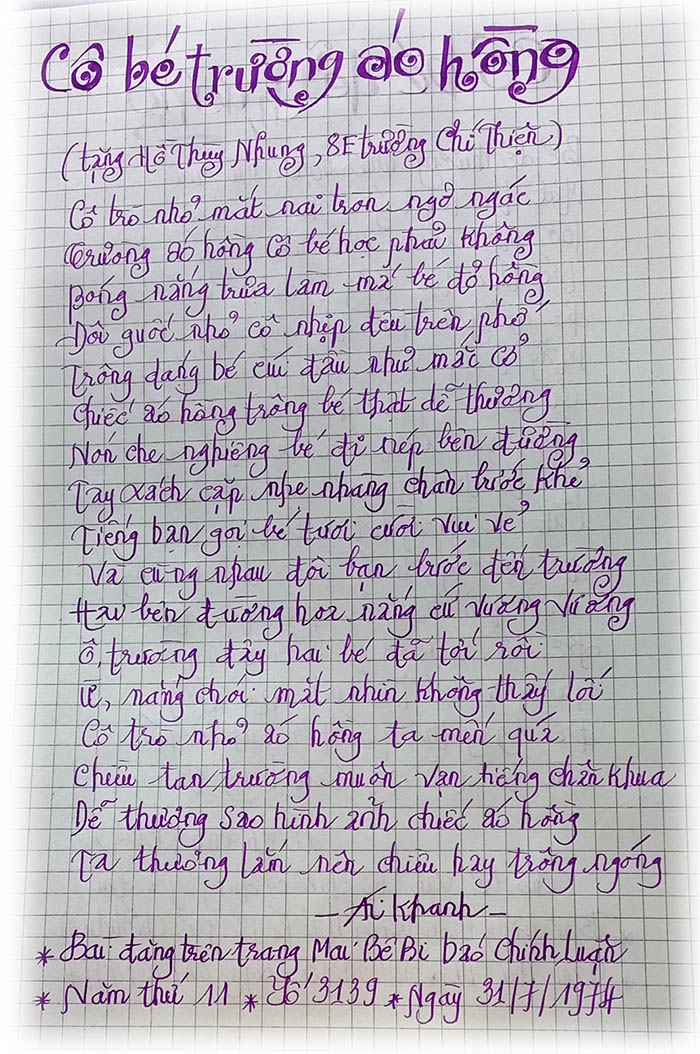 Cô bé trường áo hồng
(tặng Hồ Thụy Nhung, 8E trường Chí Thiện)
Cô trò nhỏ mắt nai tròn ngơ ngác
Trường áo hồng cô bé học phải không
Bóng nắng trưa làm má bé đỏ hồng
Đôi guốc nhỏ cô nhịp đều trên phố
Trông dáng bé cúi đầu như mắc cỡ
Chiếc áo hồng trông bé thật dễ thương
Nón che nghiêng bé đi nép bên đường
Tay xách cặp nhẹ nhàng chân bước khẽ
Tiếng bạn gọi bé tươi cười vui vẻ
Và cùng nhau đôi bạn bước đến trường
Hai bên đường hoa nắng cứ vương vương
Ô, trường đây hai bé đã tới rồi
Ừ, nắng chói mắt nhìn không thấy lối
Cô trò nhỏ áo hồng ta mến quá
Chiều tan trường muôn vạn tiếng chân khua
Dễ thương sao hình ảnh chiếc áo hồng
Ta thương lắm nên chiều hay trông ngóng
- Ái Khanh -
* Bài đăng trên trang Mai Bê Bi báo Chính Luận
* Năm thứ 11 * Số 3139 * Ngày 31/7/1974